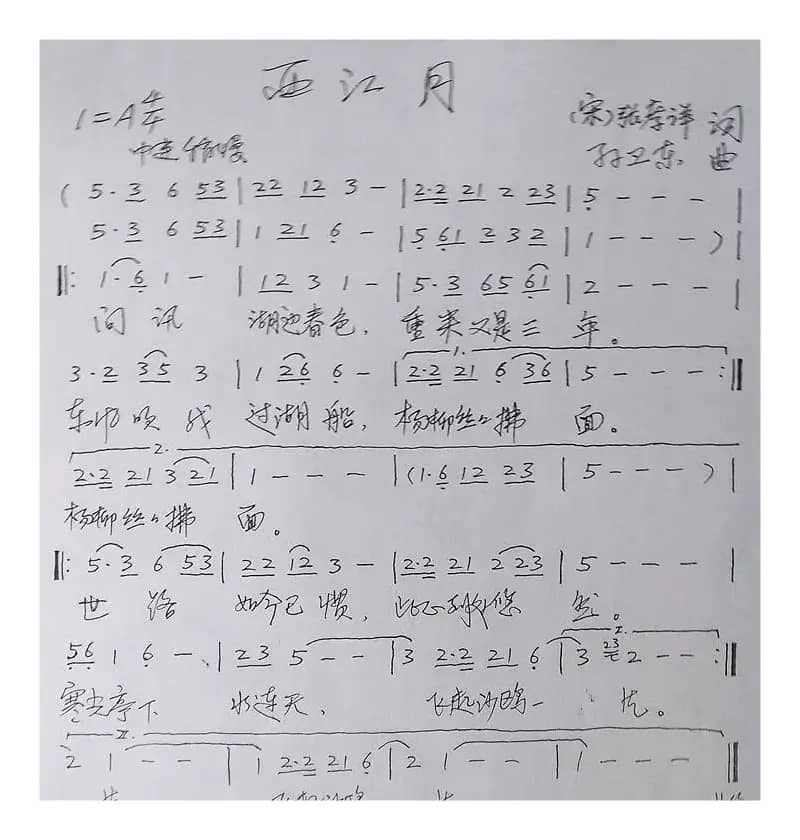 西江月
1=A 4/4
(宋)张孝祥 词
中速 稍慢
孙卫东 曲
( 5· 3 6 53 | 22 12 3 - | 2·2 21 2 23 | 5 - - - |
5· 3 6 53 | 1 21 6 - | 5 61 2 3 2 | 1 - - - ) |
‖: 1· 6 1 - | 12 3 1 - | 5· 3 65 61 | 2 - - - |
问讯 湖边春色, 重来又是三 年。
1.
3· 2 35 3 | 1 26 6 - | 2·2 21 6 36 | 5 - - - :‖
东风吹 我 过湖船, 杨柳丝丝拂 面。
2.
2·2 21 3 21 | 1 - - - | (1·6 12 23 | 5 - - - ) |
杨柳丝丝拂 面。
‖: 5· 3 6 53 | 22 12 3 - | 2·2 21 2 23 | 5 - - - |
世 路 如今已 惯, 此心到处悠 然。
I.
56 1 6 - | 23 5 - - | 3 2·2 21 6 | 3 23 2 - - :‖
寒光亭下 水连天, 飞起沙鸥一 片。
II.
2 1 - - | 1 2·2 21 6 | 2 1 - - | 1 - - - ‖